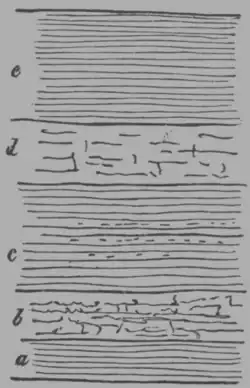 e
d
c
b
a